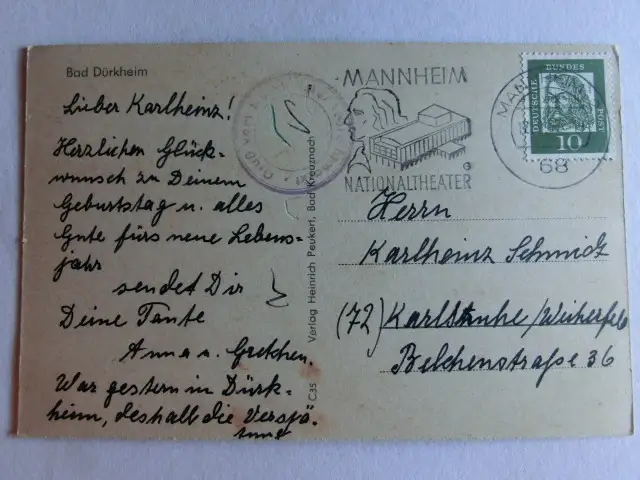 Bad Dürkheim
Lieber Karlheinz!
Herzlichen Glück-
wunsch zu Deinem
Geburtstag u. alles
Gute fürs neue Lebens-
jahr
sendet Dir
Deine Tante
Anna u. Gretchen.
War gestern in Dürk-
heim, deshalb die Verspä-
tung
Verlag Heinrich Peukert, Bad Kreuznach
C35
MANNHEIM
NATIONALTHEATER
68
DEUTSCHE BUNDES POST
10
Herrn
Karlheinz Schmidt
(72) Karlsruhe/Weiherfeld
Belchenstraße 36